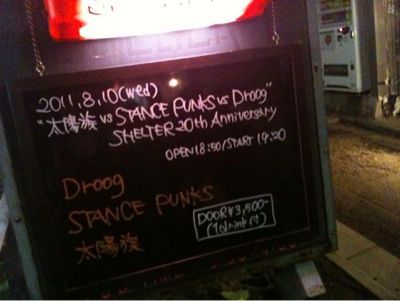 2011.8.10(wed)
"太陽族 vs STANCE PUNKS vs Droog"
SHELTER 20th Anniversary
OPEN 18:50/START 19:20
Droog
STANCE PUNKS
太陽族
DOOR ¥3,500-
(1drink付)